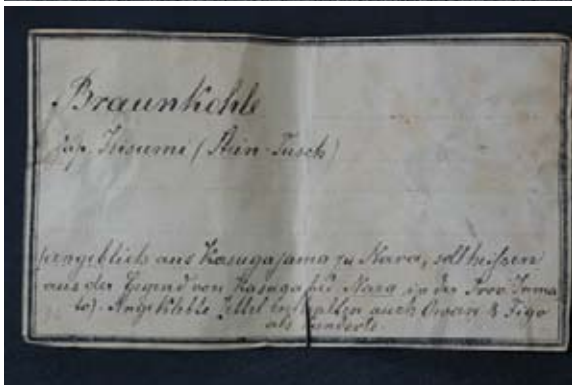 Braunkohle
Jap. Isisumi (Stein-Tusch)
angeblich aus Kasugajama zu Nara, soll heissen
aus der Gegend von Kasuga bei Nara in der Prov.
to). Angeklebte Zettel enthalten auch Owari & Figo
als Fundorte.